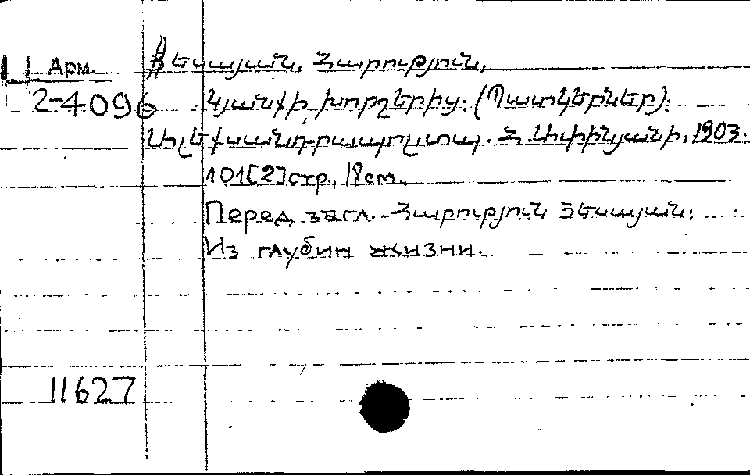 Арм.
Եսայան, Հարություն,
2-4096
Կյանքի խորշերից. (Պատկերներ).
Ալեքսանդրապոլ, տպ. 1903.
101[2] стр., 18 см.
Перед загл. Հարություն Եսայան.
Из глубин жизни.
11627